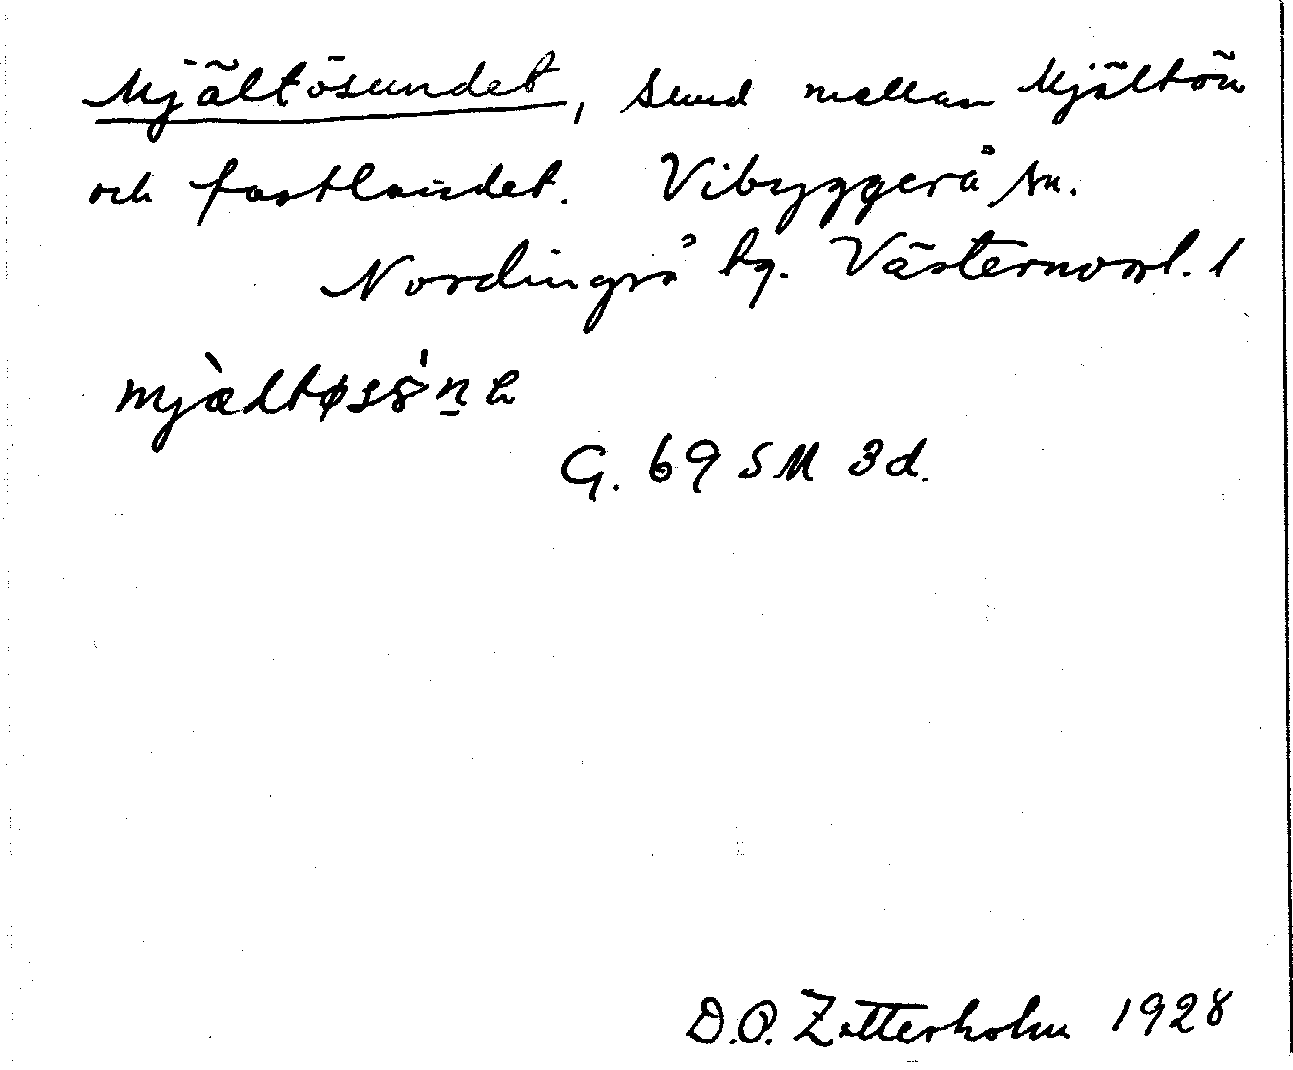 Mjältösundet, Sund mellan Mjältön
och fastlandet. Vibyggerå sn.
Nordingrå tg. Västernorrl. l
G. 69 SM 3d.
D.O. Zetterholm 1928